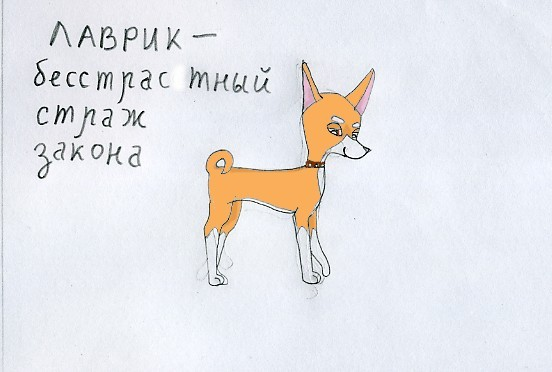 ЛАВРИК —
бесстрас тный
страж
закона